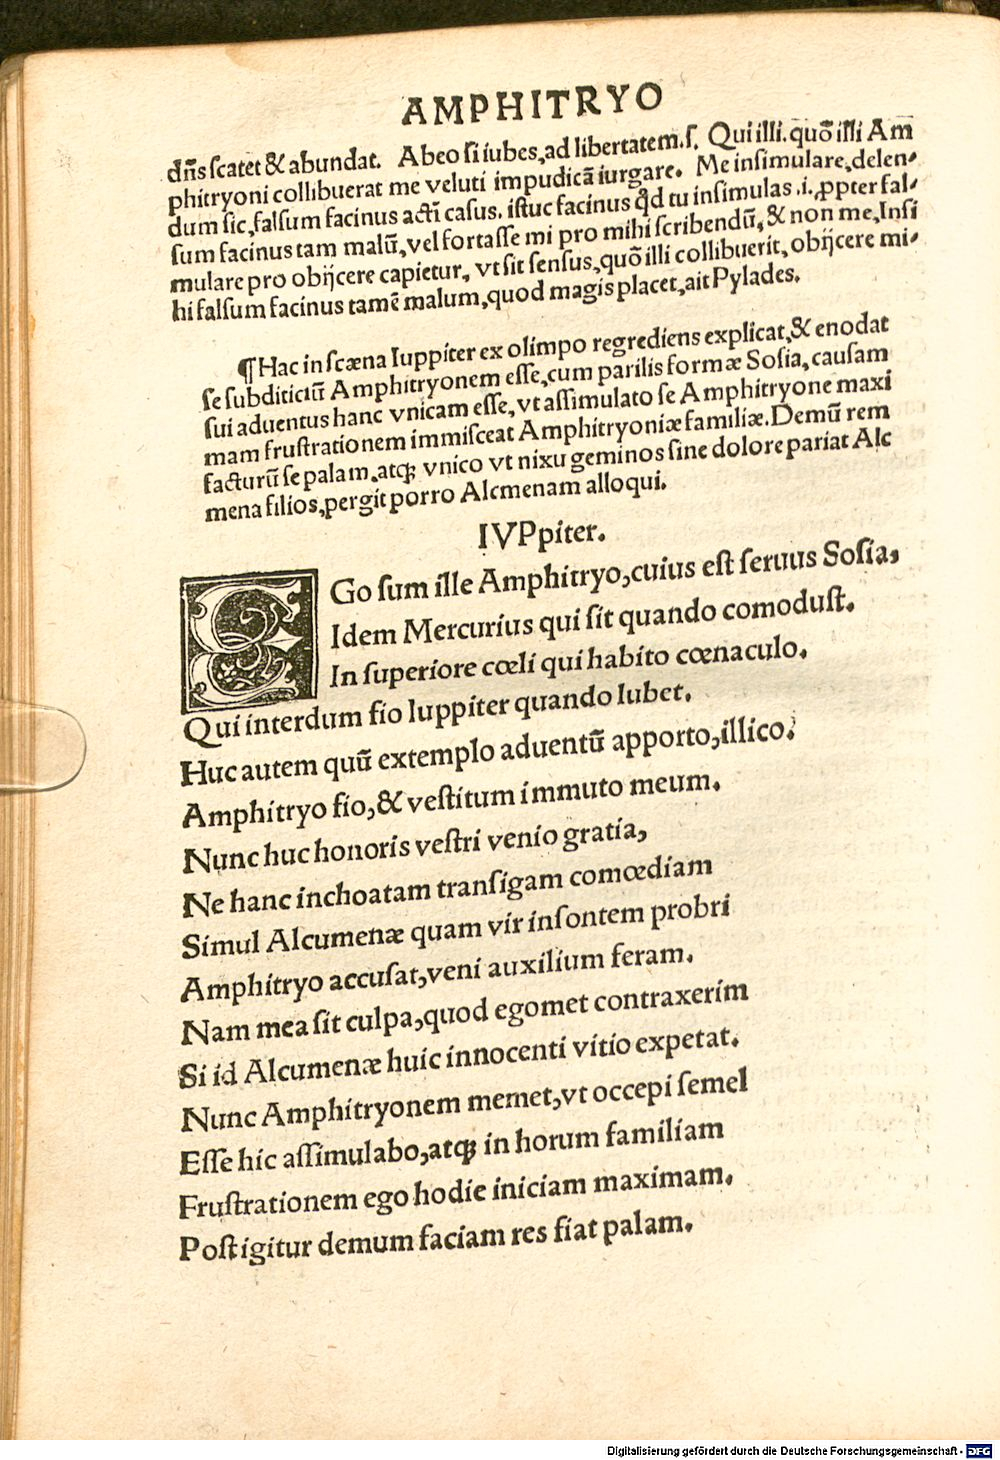 AMPHITRYO
dn̄s scatet & abundat. Abeo si iubes, ad libertatem.s. Qui illi. quō illi Am
phitryoni collibuerat me veluti impudicā iurgare. Me insimulare, delen-
dum sic, falsum facinus actī casus. istuc facinus qd tu insimulas .i. ꝓpter fal-
sum facinus tam malū, vel fortasse mi pro mihi scribendū, & non me, Insi
mulare pro obijcere capietur, vt sit sensus, quō illi collibuerit, obijcere mi-
hi falsum facinus tamē malum, quod magis placet, ait Pylades.
¶ Hac in scæna Iuppiter ex olimpo regrediens explicat, & enodat
se subditiciū Amphitryonem esse, cum parilis formæ Sosia, causam
sui aduentus hanc vnicam esse, vt assimulato se Amphitryone maxi
mam frustrationem immisceat Amphitryoniæ familiæ. Demū rem
facturū se palam, atqꝫ vnico vt nixu geminos sine dolore pariat Alc
mena filios, pergit porro Alcmenam alloqui.
IVPpiter.
EGo sum ille Amphitryo, cuius est seruus Sosia,
Idem Mercurius qui sit quando comodust.
In superiore cœli qui habito cœnaculo.
Qui interdum fio Iuppiter quando lubet.
Huc autem quū extemplo aduentū apporto, illico.
Amphitryo fio, & vestitum immuto meum.
Nunc huc honoris vestri venio gratia,
Ne hanc inchoatam transigam comœdiam
Simul Alcumenæ quam vir insontem probri
Amphitryo accusat, veni auxilium feram.
Nam mea sit culpa, quod egomet contraxerim
Si id Alcumenæ huic innocenti vitio expetat.
Nunc Amphitryonem memet, vt occepi semel
Esse hic assimulabo, atqꝫ in horum familiam
Frustrationem ego hodie iniciam maximam.
Post igitur demum faciam res fiat palam.
Digitalisierung gefördert durch die Deutsche Forschungsgemeinschaft - DFG